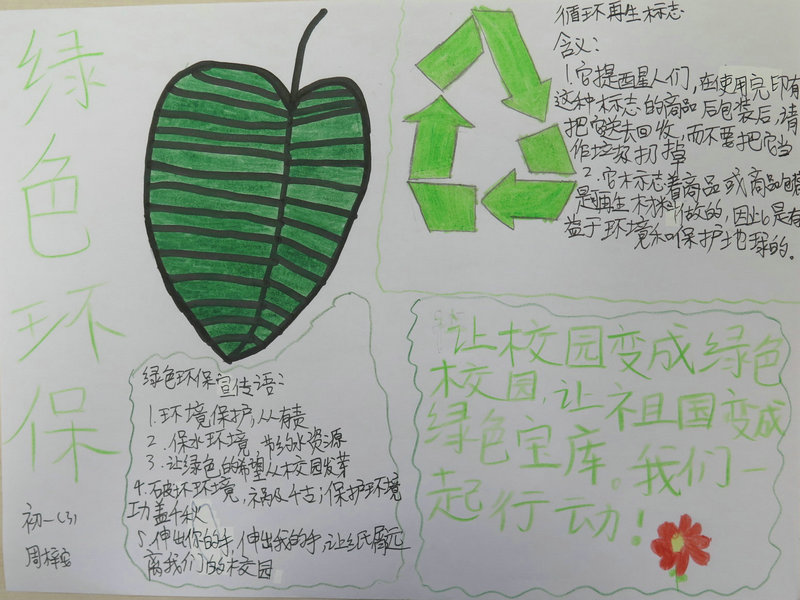 绿色环保
初一(3)
周梓
循环再生标志
含义：
1.它提醒人们，在使用完印有
这种标志的商品后包装后，请
把它送去回收，而不要把它当
作垃圾扔掉
2.它标志着商品或商品包装
是再生材料做的，因此是有
益于环境和保护地球的。
绿色环保宣传语：
1.环境保护，从有责
2.保水环境 节约水资源
3.让绿色的希望从校园发芽
4.破坏环境，祸及千古；保护环境
功盖千秋
5.伸出你的手，伸出我的手，让纸屑远
离我们的校园
让校园变成绿色
校园，让祖国变成
绿色宝库。我们一
起行动！